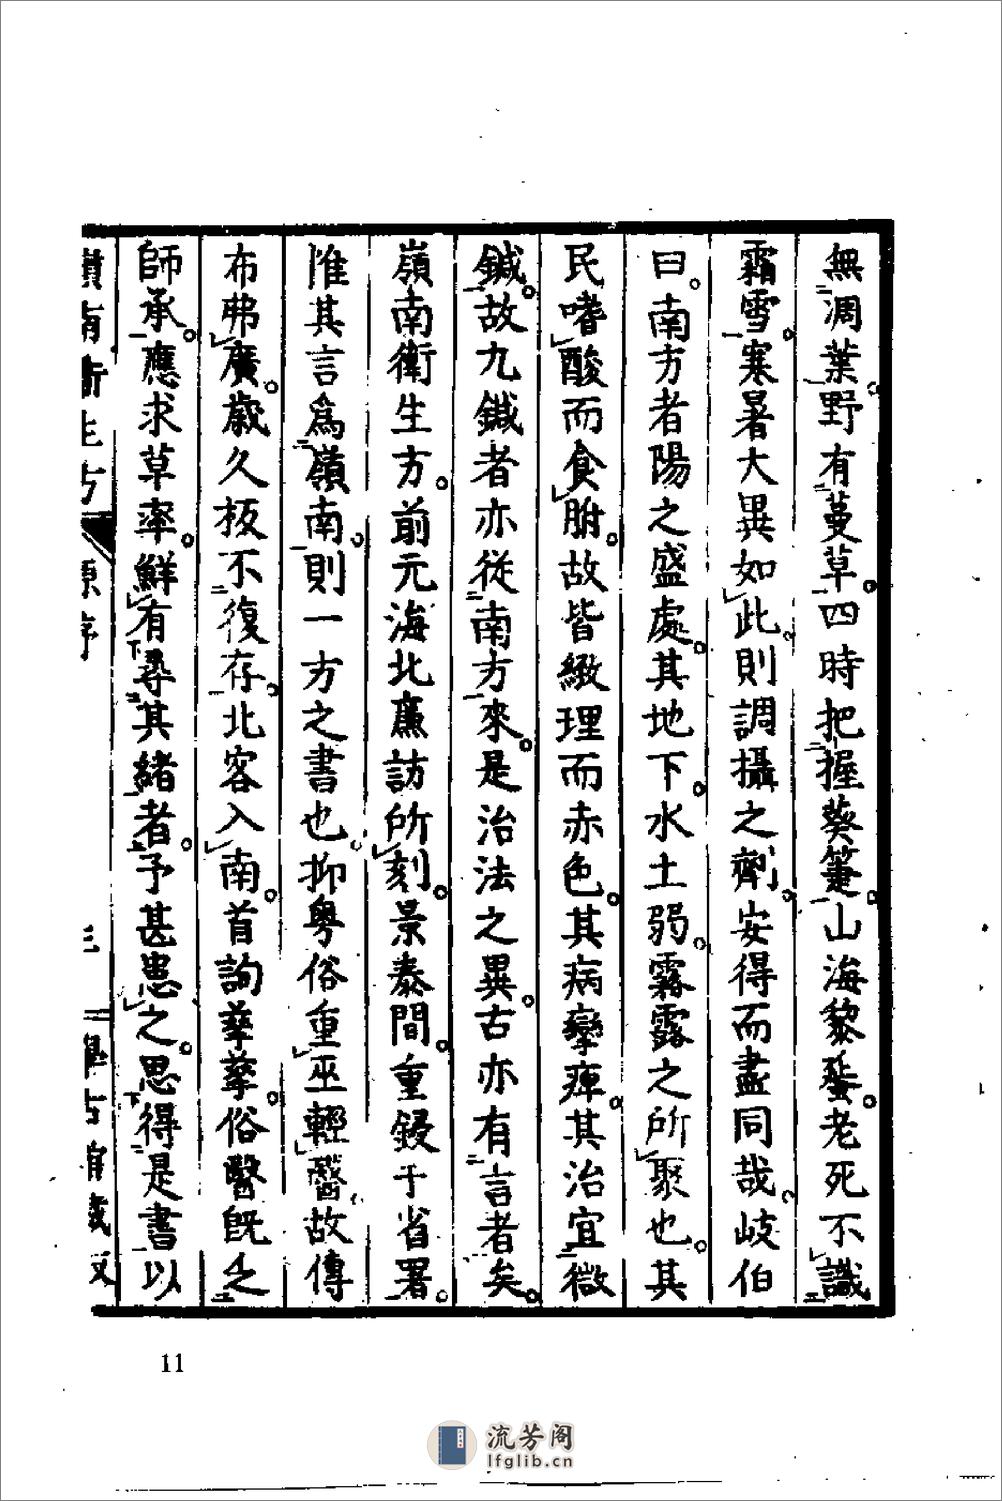 無凋葉野有蔓草四時把握葵箑山海黎蜑老死不識
霜雪寒暑大異如此則調攝之劑安得而盡同哉岐伯
曰南方者陽之盛處其地下水土弱霧露之所聚也其
民嗜酸而食胕故皆緻理而赤色其病攣痺其治宜微
鍼故九鍼者亦從南方來是治法之異古亦有言者矣
嶺南衛生方前元海北廉訪所刻景泰間重鋟于省署
惟其言爲嶺南則一方之書也抑粤俗重巫輕醫故傳
布弗廣歲久板不復存北客入南首詢孳孳俗醫旣乏
師承應求草率鮮有尋其緒者予甚患之思得是書以
嶺南衛生方 原序 三 學古館藏版
11
流芳阁
lfglib.cn